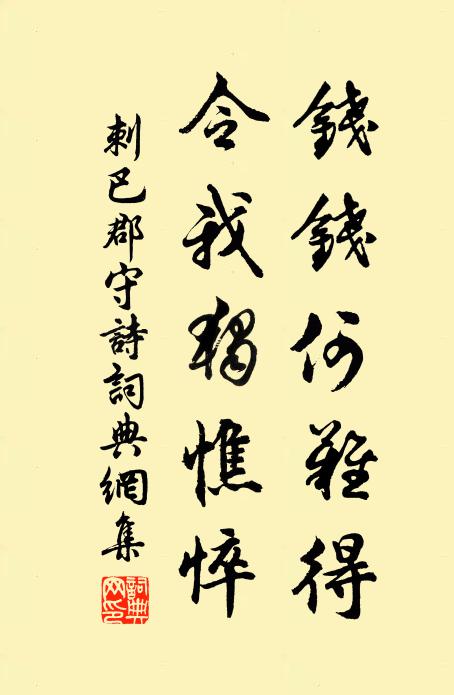 錢錢何難得
令我獨憔悴
刺巴郡守詩詞典網集